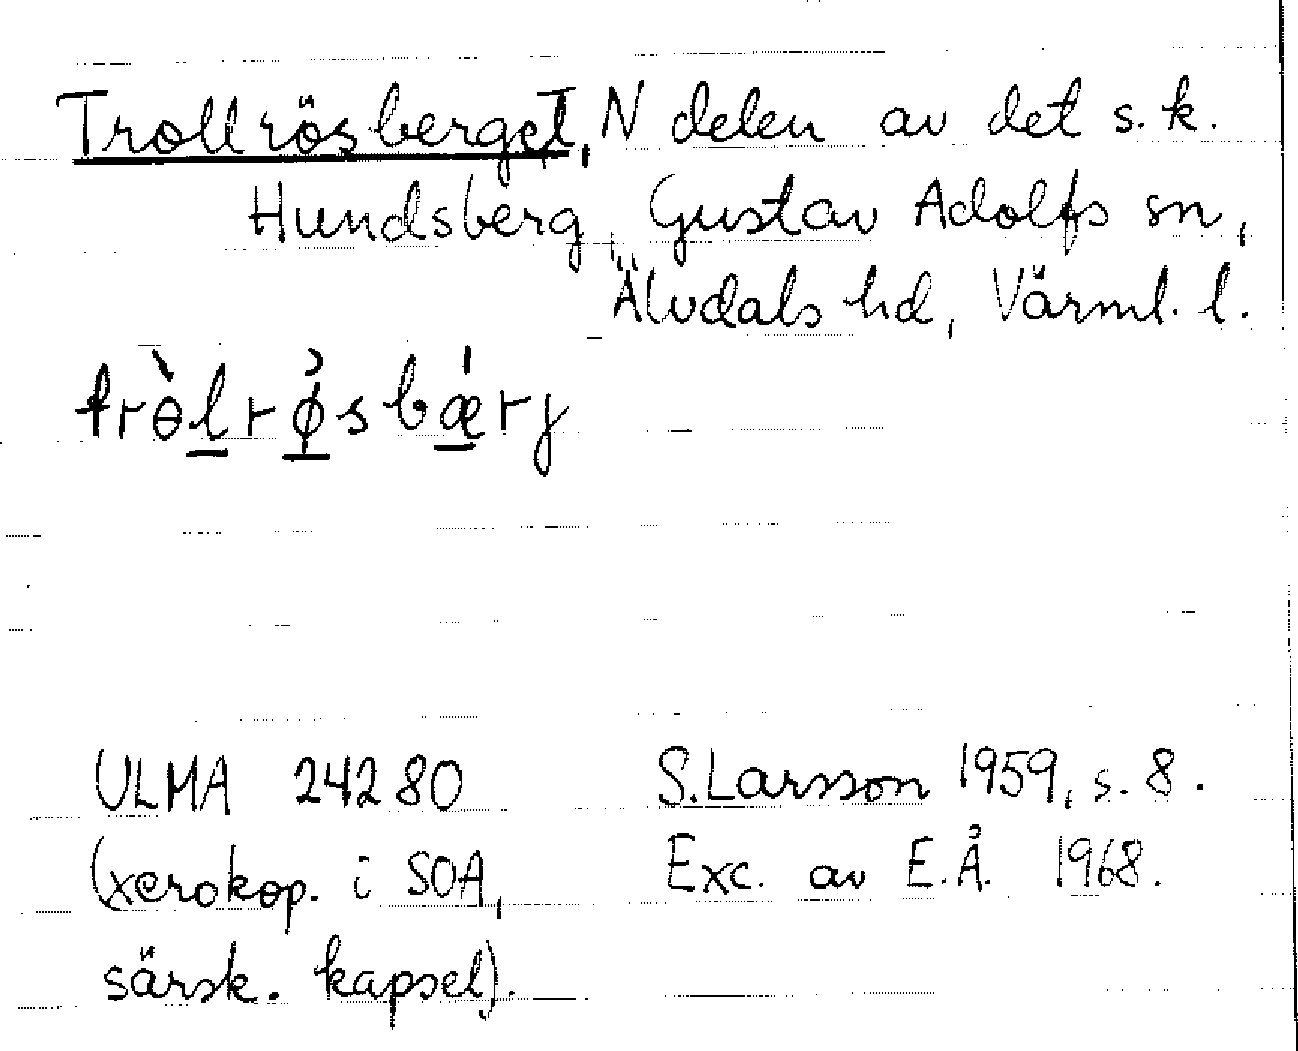 Trollrösberget, N delen av det s.k.
Hundsberg, Gustav Adolfs sn,
Älvdals hd, Värml. l.
trɵ̀l̲rø̲sbǽ̲rj
ULMA 24280 S. Larsson 1959, s. 8.
(xerokop. i SOA, Exc. av E.Å. 1968.
särsk. kapsel).